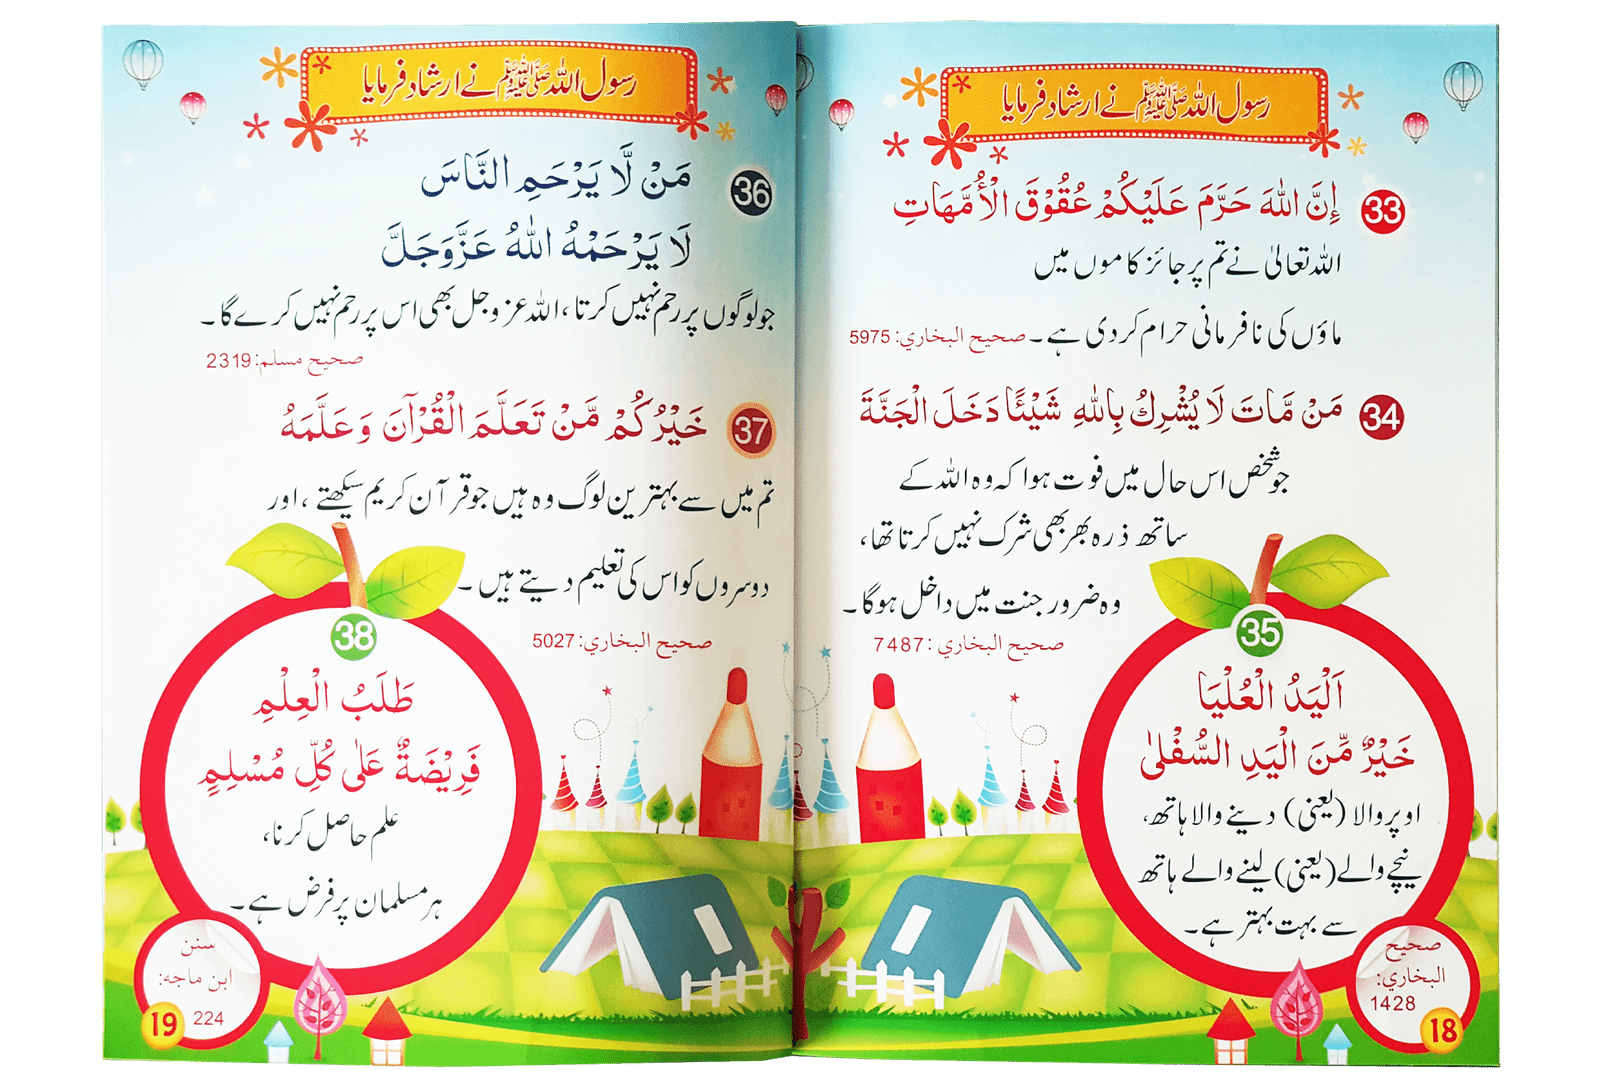 رسول الله ﷺ نے ارشاد فرمایا
33
إِنَّ اللهَ حَرَّمَ عَلَيْكُمْ عُقُوْقَ الْأُمَّهَاتِ
الله تعالیٰ نے تم پر جائز کاموں میں
ماؤں کی نافرمانی حرام کردی ہے۔ صحيح البخاري: 5975
34
مَنْ مَّاتَ لَا يُشْرِكُ بِاللهِ شَيْئًا دَخَلَ الْجَنَّةَ
جو شخص اس حال میں فوت ہوا کہ وہ الله کے
ساتھ ذرہ بھر بھی شرک نہیں کرتا تھا،
وہ ضرور جنت میں داخل ہوگا۔
صحيح البخاري: 7487
35
اَلْيَدُ الْعُلْيَا
خَيْرٌ مِّنَ الْيَدِ السُّفْلىٰ
اوپر والا (یعنی) دینے والا ہاتھ،
نیچے والے (یعنی) لینے والے ہاتھ
سے بہت بہتر ہے۔
صحيح
البخاري:
1428
18
رسول الله ﷺ نے ارشاد فرمایا
36
مَنْ لَّا يَرْحَمِ النَّاسَ
لَا يَرْحَمْهُ اللهُ عَزَّوَجَلَّ
جو لوگوں پر رحم نہیں کرتا، الله عزوجل بھی اس پر رحم نہیں کرے گا۔
صحيح مسلم: 2319
37
خَيْرُكُمْ مَّنْ تَعَلَّمَ الْقُرْآنَ وَعَلَّمَهُ
تم میں سے بہترین لوگ وہ ہیں جو قرآن کریم سیکھتے، اور
دوسروں کو اس کی تعلیم دیتے ہیں۔
صحيح البخاري: 5027
38
طَلَبُ الْعِلْمِ
فَرِيْضَةٌ عَلىٰ كُلِّ مُسْلِمٍ
علم حاصل کرنا،
ہر مسلمان پر فرض ہے۔
سنن
ابن ماجه:
224
19